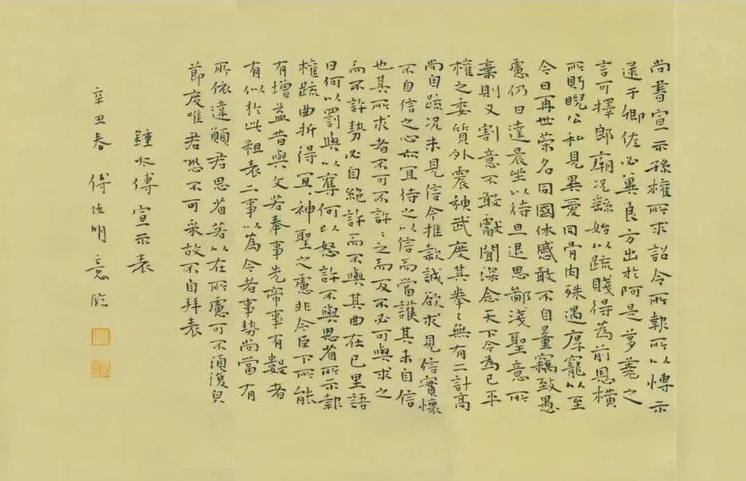 尚書宣示孫權所求詔令所報所以博示
逮于卿佐必冀良方出於阿是芻蕘之
言可擇郎廟况繇始以疏賤得為前恩橫
所眄睨公私見異愛同骨肉殊遇厚寵以至
今日再世榮名同國休慼敢不自量竊致愚
慮仍日達晨坐以待旦退思鄙淺聖意所
棄則又割意不敢獻聞深念天下今為已平
權之委質外震神武度其拳々無有二計高
尚自疏况未見信今推款誠欲求見信實懷
不自信之心亦宜待之以信而當護其未自信
也其所求者不可不許々之而反不必可與求之
而不許勢必自絕許而不與其曲在己里語
曰何以罰與以奪何以怒許不與思省所示報
權疏曲折得宜神聖之慮非今臣下所能
有增益昔與文若奉事先帝事有數者
有似於此粗表二事以為今者事勢尚當有
所依違願君思省若以在所慮可不須復皃
節度唯君恐不可采故不自拜表
鍾太傅宣示表
辛丑春 傅明意臨